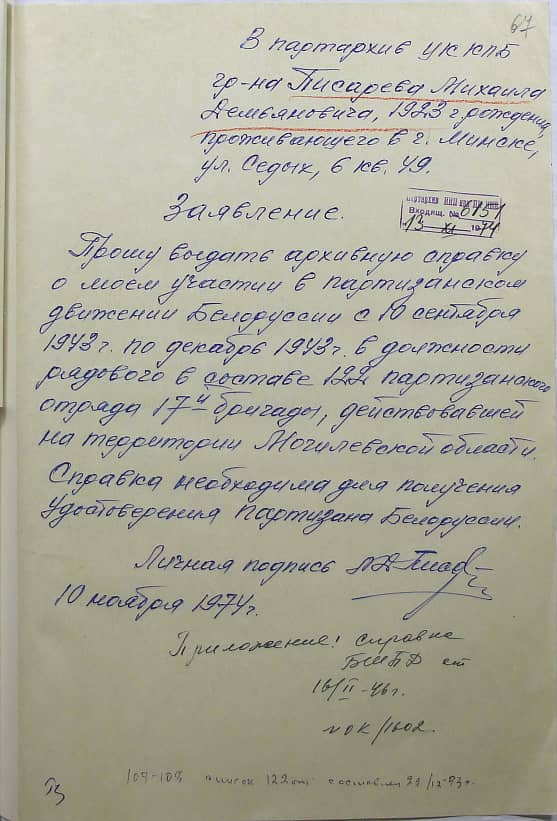 67
В партархив ЦК КПБ
гр-на Писарева Михаила
Демьяновича, 1923 г. рождения,
проживающего в г. Минске,
ул. Седых, 6 кв. 49.
Партархив ИИП при ЦК КПБ
Входящ. № 6151
13 XI 1974
Заявление.
Прошу выдать архивную справку
о моем участии в партизанском
движении Белоруссии с 10 сентября
1943 г. по декабрь 1943 г. в должности
рядового в составе 122 партизанского
отряда 17й бригады, действовавшей
на территории Могилевской области.
Справка необходима для получения
Удостоверения Партизана Белоруссии.
Личная подпись
10 ноября 1974 г.
Приложение: справка
БШПД от
16/II-46 г.
N ОК/1602.
список 122 отр составлен